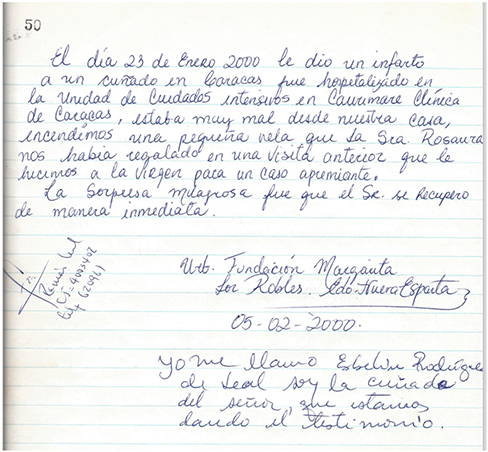 50
El día 23 de Enero 2000 le dio un infarto
a un cuñado en Caracas fue hopetalizado en
la Unidad de Cuidados intensivos en Caurimare Clínica
de Caracas, estaba muy mal desde nuestra casa,
encendimos una pequeña vela que la Sra. Rosaura
nos había regalado en una visita anterior que le
hicimos a la Virgen para un caso apremiante.
La Sorpresa milagrosa fue que el Sr. se Recupero
de manera inmediata.
Urb. Fundación Margarita
Los Robles. Edo. Nueva Esparta
05-02-2000.
yo me llamo Ebelin Rodríguez
de Leal soy la cuñada
del señor, que estamos
dando el testimonio.